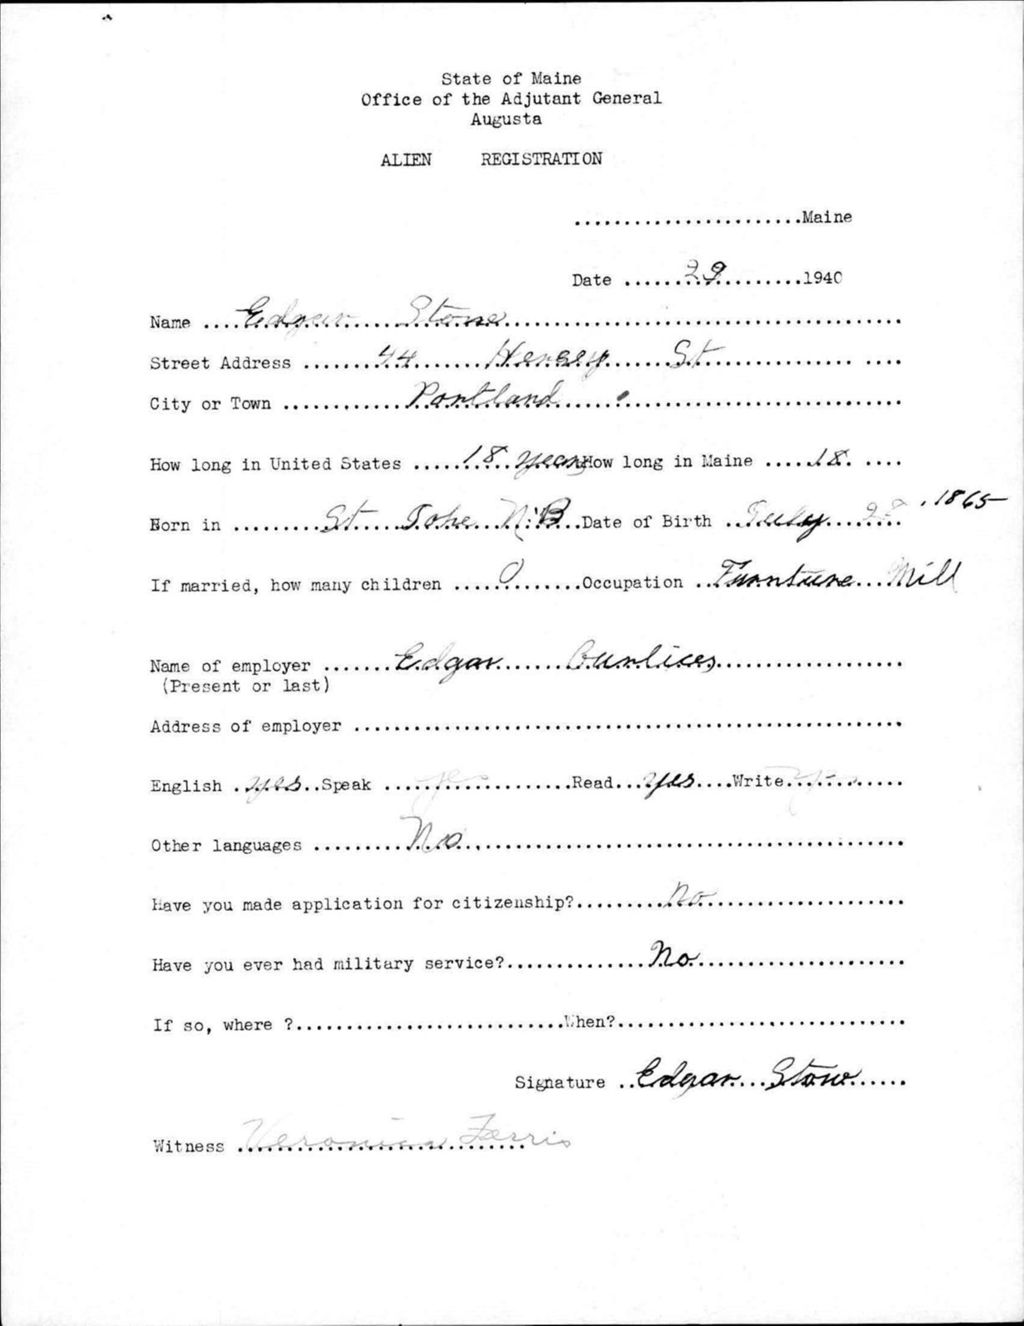 State of Maine
Office of the Adjutant General
Augusta
ALIEN REGISTRATION
.......................Maine
Date .......29.........1940
Name ....Edgar.....Stone........................................
Street Address ........44.......Hersey......St................ ....
City or Town .............Portland......................................
How long in United States .....18..years How long in Maine .....18. ....
Born in .........St....Johe...N.B...Date of Birth ..July....28.... , 1865
If married, how many children ....0.......Occupation ..Furnture...Mill
Name of employer .......Edgar.......................
(Present or last)
Address of employer .......................................................
English .yes..Speak ....yes...........Read...yes....Write...yes.....
Other languages .........No...........................................
Have you made application for citizenship?.........no....................
Have you ever had military service?..............No.....................
If so, where ?...........................When?.............................
Signature ..Edgar...Stone.....
Witness Veronica Ferris